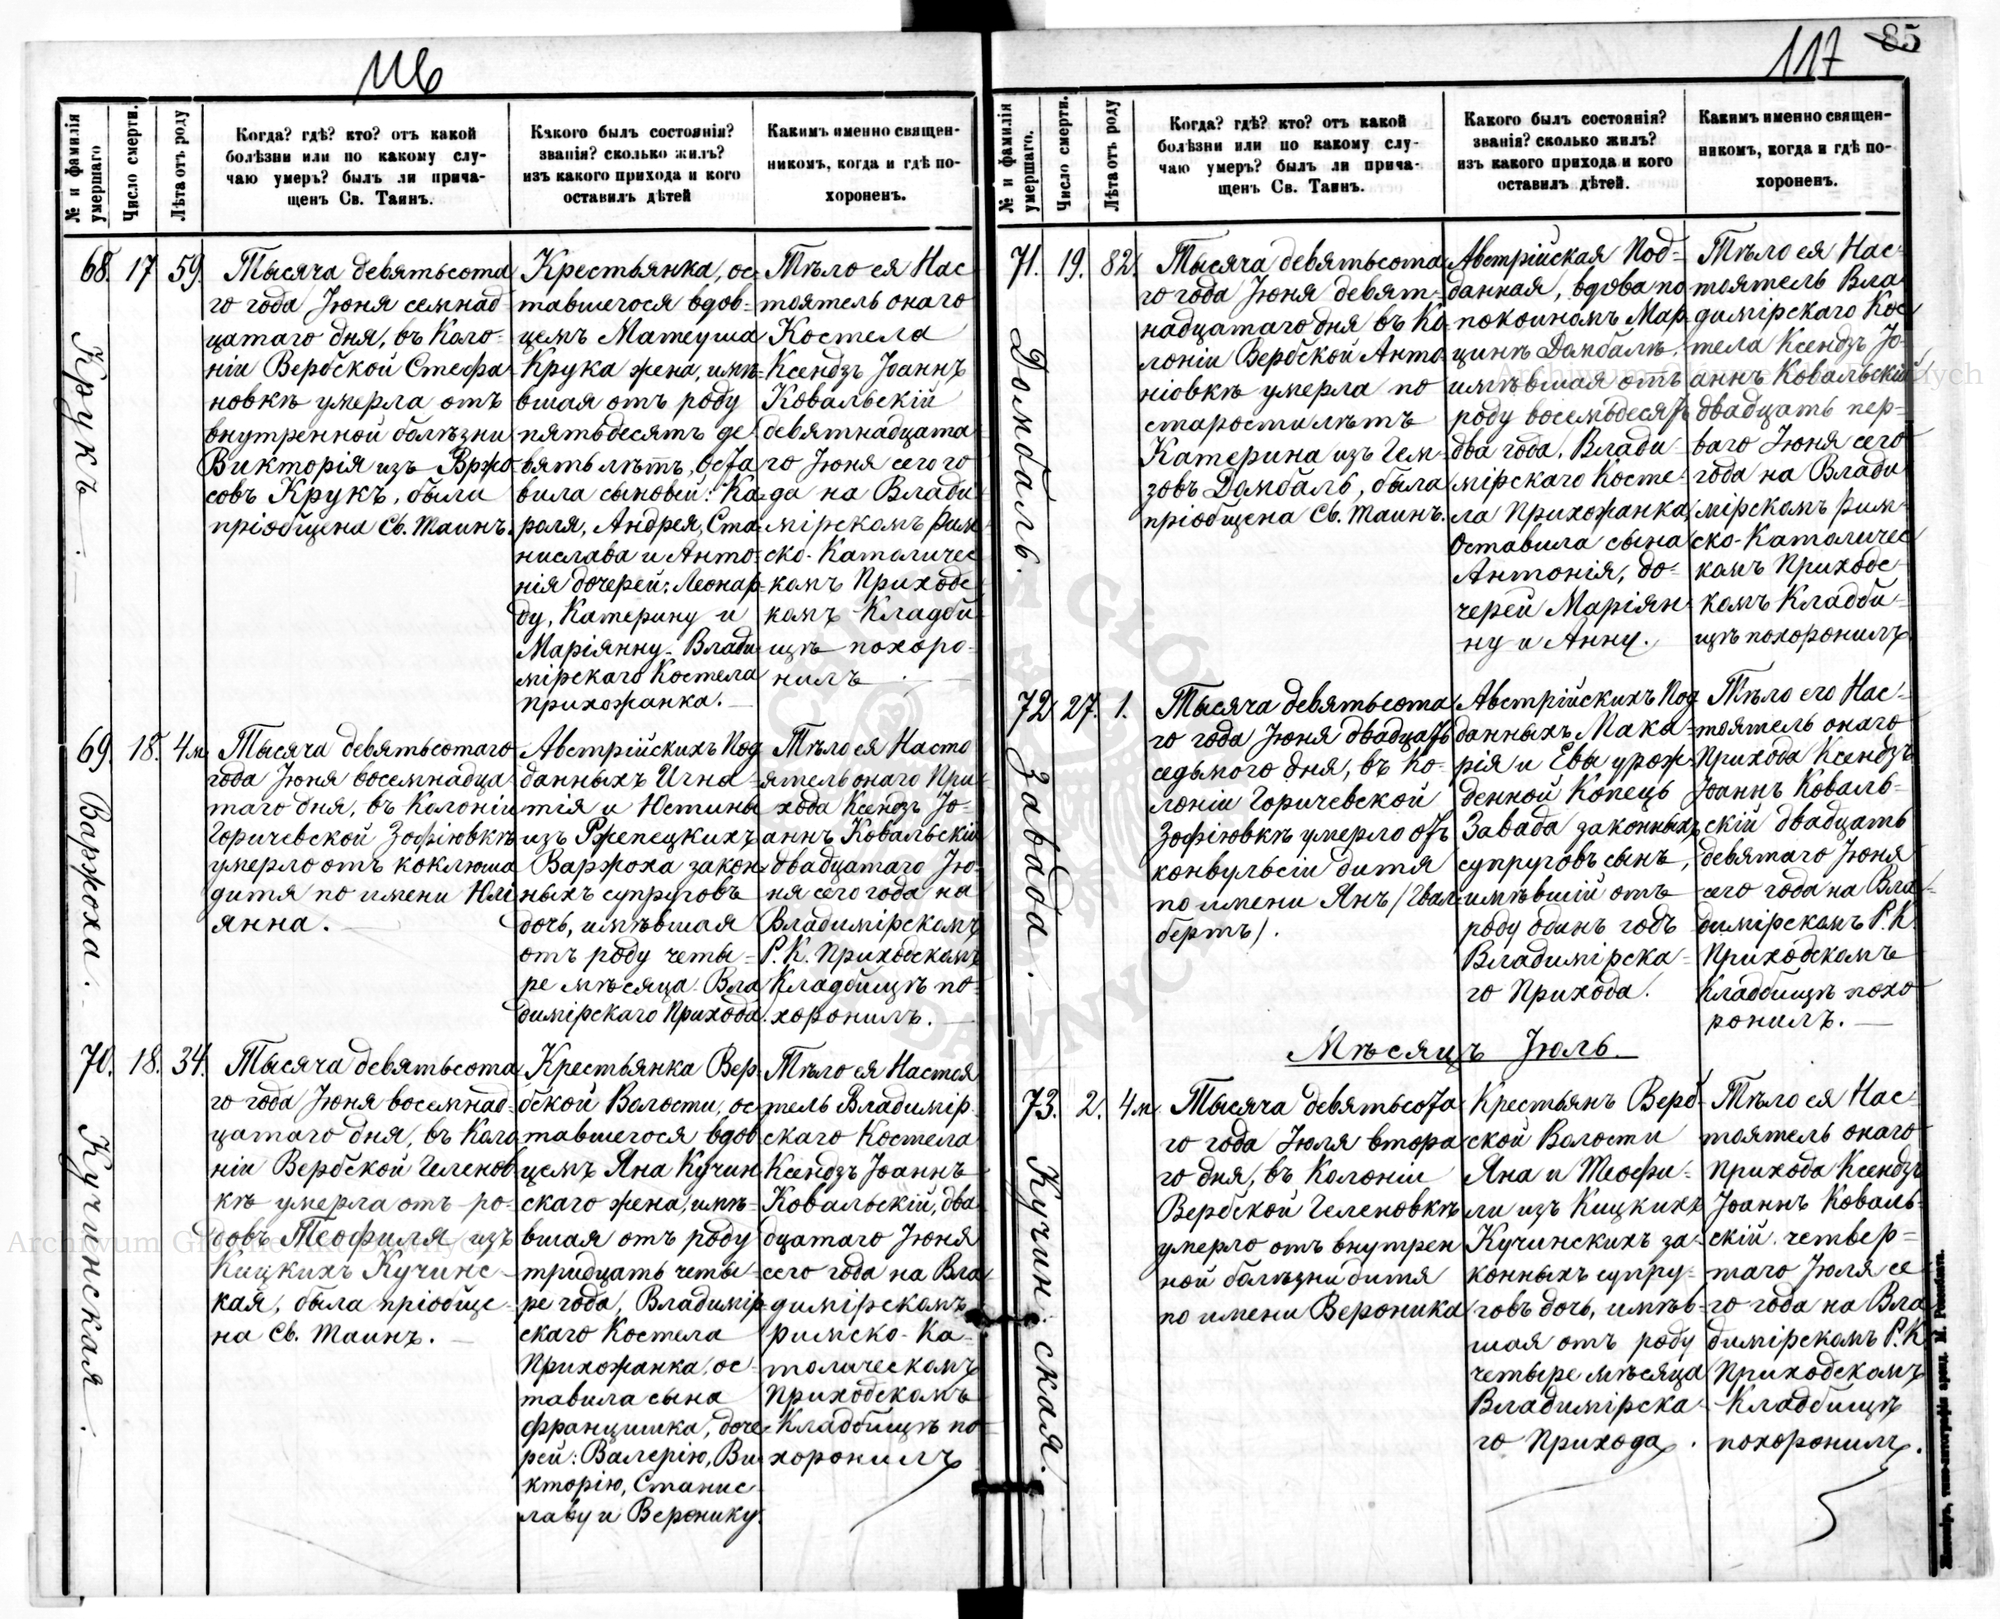 116
№ и фамилія умершаго
Число смерти.
Лѣта отъ роду
Когда? гдѣ? кто? отъ какой
болѣзни или по какому слу-
чаю умеръ? былъ ли прича-
щенъ Св. Таинъ.
Какого былъ состоянія?
званія? сколько жилъ?
изъ какого прихода и кого
оставилъ дѣтей
Какимъ именно священ-
никомъ, когда и гдѣ по-
хороненъ.
68. 17 59.
Крукъ.
Тысяча девятьсота
го года Іюня семнад-
цатаго дня, въ Коло-
ніи Вербской Стефа-
новкѣ умерла отъ
внутренной болѣзни
Викторія изъ Вржо
совъ Крукъ, были
пріобщена Св. Таинъ.
Крестьянка, ос-
тавшегося вдов-
цемъ Матеуша
Крука жена, имѣ-
вшая отъ роду
пятьдесятъ де-
вять лѣтъ, оста
вила сыновей: Ка-
роля, Андрея, Ста
нислава и Анто-
нія дочерей: Леонар-
ду, Катерину и
Маріянну. Влади
мірскаго Костела
прихожанка.
Тѣло ея Нас
тоятель онаго
Костела
Ксендзъ Іоаннъ
Ковальскій
девятнадцата
го Іюня сего го
да на Влади
мірскомъ рим
ско-Католичес
комъ Приходс
комъ Кладби
щѣ похоро-
нилъ
69. 18. 4 м
Варжоха.
Тысяча девятьсотаго
года Іюня восемнадца
таго дня, въ Колоніи
Горичевской Зофіювкѣ
умерло отъ коклюша
дитя по имени Юлі
янна.
Австрійскихъ Под
данныхъ Игна-
тія и Юстины
изъ Ржепецкихъ
Варжоха закон
ныхъ супруговъ
дочь, имѣвшая
отъ роду четы-
ре мѣсяца. Вла
димірскаго Прихода.
Тѣло ея Насто
ятель онаго При
хода Ксендзъ Іо-
аннъ Ковальскій
двадцатаго Ію-
ня сего года на
Владимірскомъ
Р. К. Приходскомъ
Кладбищѣ по-
хоронилъ.
70. 18. 34.
Кучинская.
Тысяча девятьсота
го года Іюня восемнад-
цатаго дня, въ Коло
ніи Вербской Геленов
кѣ умерла отъ ро-
довъ Теофиля изъ
Кицкихъ Кучинс-
кая, была пріобще-
на Св. Таинъ.
Крестьянка Вер-
бской Волости, ос-
тавшегося вдов
цемъ Яна Кучин
скаго жена, имѣ-
вшая отъ роду
тридцать четы-
ре года, Владимір
скаго Костела
Прихожанка, ос-
тавила сына
Францишка, доче-
рей: Валерію, Ви
кторію, Станис-
лаву и Веронику.
Тѣло ея Настоя
тель Владимір-
скаго Костела
Ксендзъ Іоаннъ
Ковальскій, два
дцатаго Іюня
сего года на Вла
димірскомъ
римско-Ка-
толическомъ
Приходскомъ
Кладбищѣ по-
хоронилъ
117
85
№ и фамилія умершаго.
Число смерти.
Лѣта отъ роду
Когда? гдѣ? кто? отъ какой
болѣзни или по какому слу-
чаю умеръ? былъ ли прича-
щенъ Св. Таинъ.
Какого былъ состоянія?
званія? сколько жилъ?
изъ какого прихода и кого
оставилъ дѣтей.
Какимъ именно священ-
никомъ, когда и гдѣ по-
хороненъ.
71. 19. 82.
Домбаль.
Тысяча девятьсота
го года Іюня девят-
надцатаго дня въ Ко
лоніи Вербской Анто
ніовкѣ умерла по
старости лѣтъ
Катерина изъ Гем-
зовъ Домбаль, была
пріобщена Св. Таинъ.
Австрійская Под-
данная, вдова по
покоиномъ Мар-
цинѣ Домбалѣ,
имѣвшая отъ
роду восемьдесятъ
два года. Влади-
мірскаго Косте-
ла Прихожанка,
оставила сына
Антонія, до-
черей Маріян-
ну и Анну.
Тѣло ея Нас-
тоятель Вла
димірскаго Кос
тела Ксендзъ Іо-
аннъ Ковальскій
двадцать пер-
ваго Іюня сего
года на Влади
мірскомъ рим-
ско-Католичес
комъ Приходс-
комъ Кладби-
щѣ похоронилъ.
72. 27. 1.
Завада.
Тысяча девятьсота
го года Іюня двадцать
седьмого дня, въ Ко-
лоніи Горичевской
Зофіювкѣ умерло отъ
конвульсіи дитя
по имени Янъ (Гвал-
бертъ).
Австрійскихъ Под
данныхъ Мака-
рія и Евы урож-
денной Копець
Завада законныхъ
супруговъ сынъ,
имѣвшій отъ
роду одинъ годъ
Владимірска-
го Прихода.
Тѣло его Нас-
тоятель онаго
Прихода Ксендзъ
Іоаннъ Коваль-
скій двадцать
девятаго Іюня
сего года на Вла-
димірскомъ Р. К.
Приходскомъ
Кладбищѣ похо
ронилъ.
Мѣсяцъ Іюль.
73. 2. 4 м
Кучинская.
Тысяча девятьсота
го года Іюля втора
го дня, въ Колоніи
Вербской Геленовкѣ
умерло отъ внутрен
ной болѣзни дитя
по имени Вероника
Крестьянъ Верб-
ской Волости
Яна и Теофи-
ли изъ Кицкихъ
Кучинскихъ за-
конныхъ супру-
говъ дочь, имѣв-
шая отъ роду
четыре мѣсяца
Владимірска-
го Прихода.
Тѣло ея Нас-
тоятель онаго
Прихода Ксендзъ
Іоаннъ Коваль-
скій четвер-
таго Іюля се
го года на Вла
димірскомъ Р. К
Приходскомъ
Кладбищѣ
похоронилъ.